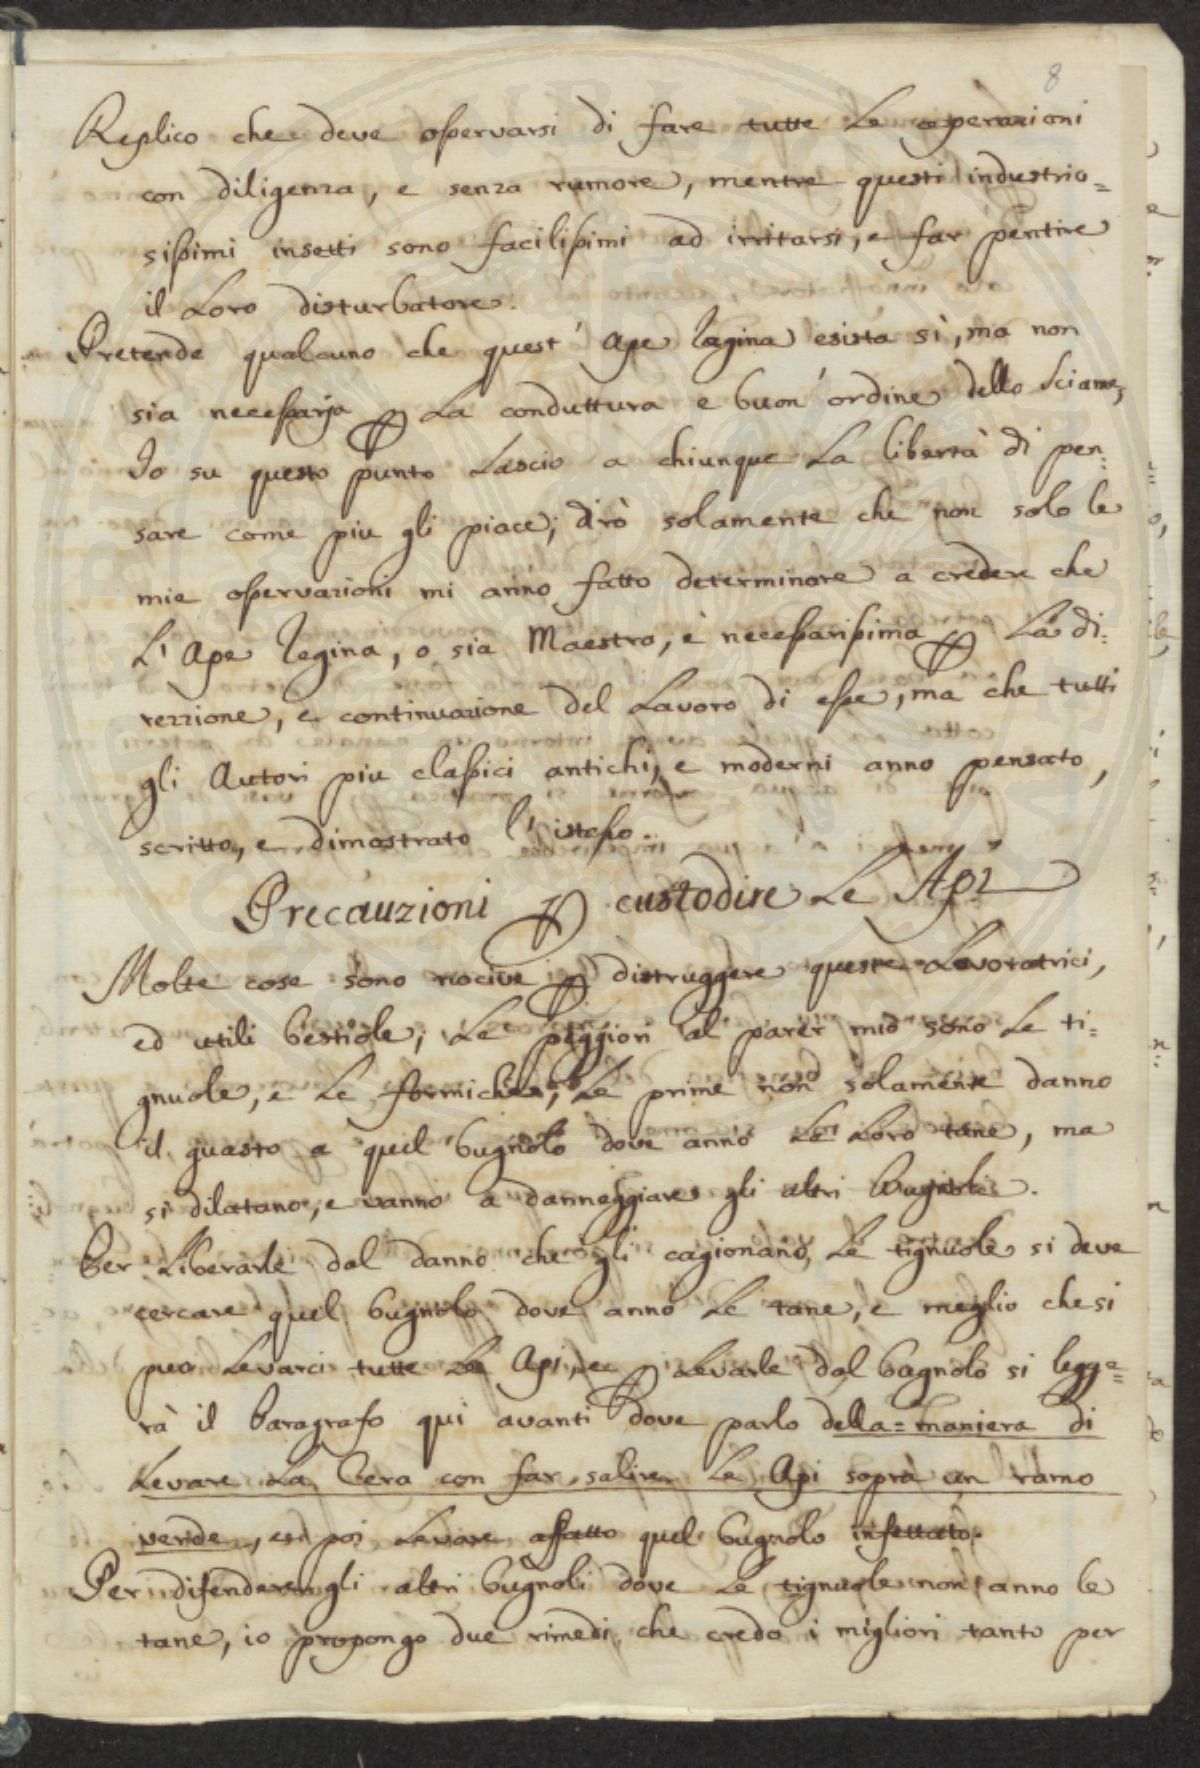 8
Replico che deve osservarsi di fare tutte le operazioni
con diligenza, e senza rumore, mentre questi industrio=
sissimi insetti sono facilissimi ad irritarsi, e far pentire
il Loro disturbatore.
Pretende qualcuno che quest' Ape Regina esista sì, ma non
sia necessaria ꝑ La conduttura e buon' ordine dello Sciame,
Io su questo punto Lascio a chiunque La libertà di pen=
sare come piu gli piace; dirò solamente che non solo le
mie osservazioni mi anno fatto determinare a credere che
L' Ape Regina, o sia Maestra, è necessarissima ꝑ La di=
rezzione, e continuazione del Lavoro di esse, ma che tutti
gli Autori piu classici antichi, e moderni anno pensato,
scritto, e dimostrato l' istesso.
Precauzioni ꝑ custodire Le Api
Molte cose sono nocive ꝑ distruggere queste Lavoratrici,
ed utili bestiole; Le peggiori al parer mio sono Le ti=
gnuole, e Le formiche; Le prime non solamente danno
il guasto a quel bugnolo dove anno Le Loro tane, ma
si dilatano, e vanno a danneggiare gli altri bugnoli.
Per Liberarle dal danno che gli cagionano Le tignuole si deve
cercare quel bugnolo dove anno Le tane, e meglio che si
puo Levarci tutte Le Api, e ꝑ Levarle dal bugnolo si legge=
rà il Paragrafo qui avanti dove parlo della= maniera di
Levare La Cera con far salire Le Api sopra un ramo
verde, e poi Levare affatto quel bugnolo infettato.
Per difendere gli altri bugnoli dove Le tignuole non anno le
tane, io propongo due rimedi che credo i migliori tanto per